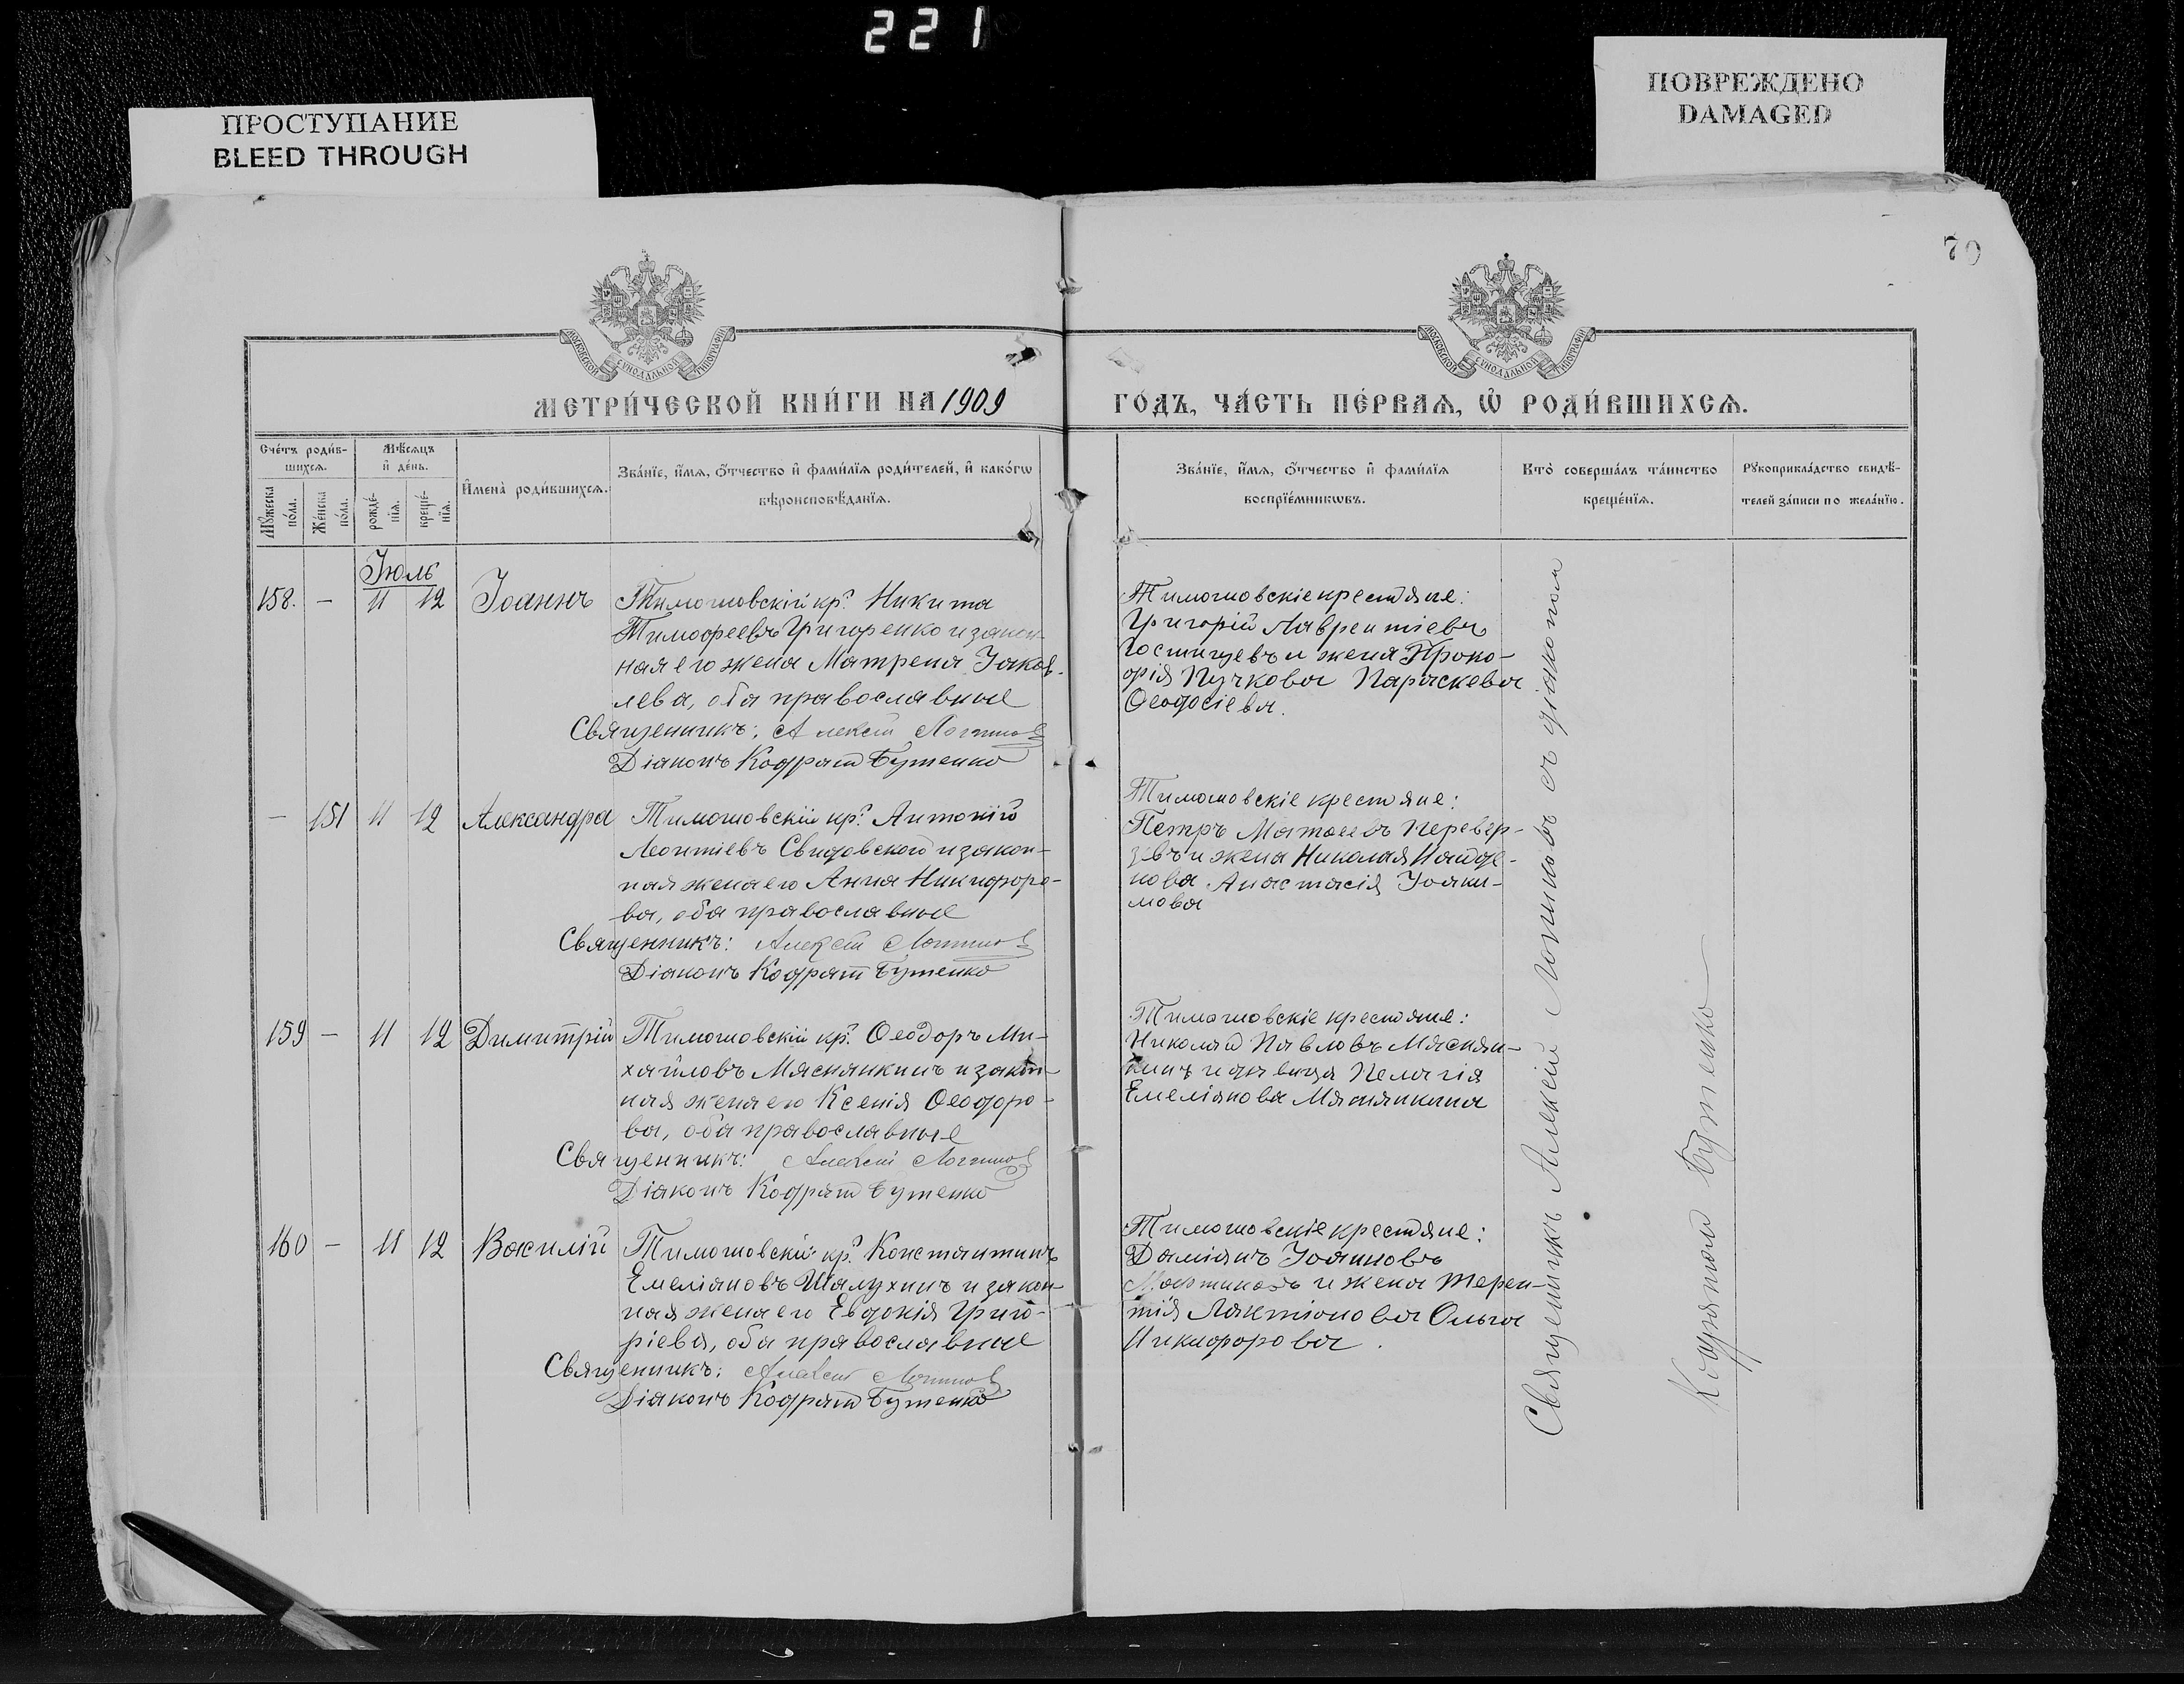 221
ПРОСТУПАНИЕ
BLEED THROUGH
ПОВРЕЖДЕНО
DAMAGED
70
МОСКОВСКОЙ СѴНОДАЛЬНОЙ ТИПОГРАФІИ
МОСКОВСКОЙ СѴНОДАЛЬНОЙ ТИПОГРАФІИ
МЕТРИ́ЧЕСКОЙ КНИ́ГИ НА 1909
ГО́ДЪ, ЧА́СТЬ ПЕ́РВАѦ, Ѿ РОДИ́ВШИХСѦ.
Сче́тъ роди́в-
шихсѧ.
Мѣ́сѧцъ
и҆ де́нь.
Мꙋ́жеска
по́ла.
Же́нска
по́ла.
рожде́-
нїѧ.
креще́-
нїѧ.
И҆мена̀ роди́вшихсѧ.
Зва́нїе, и҆́мѧ, ѻ҆́тчество и҆ фами́лїѧ роди́телей, и҆ како́гѡ
вѣроисповѣ́данїѧ.
Зва́нїе, и҆́мѧ, ѻ҆́тчество и҆ фами́лїѧ
воспрїе́мникѡвъ.
Кто̀ соверша́лъ та́инство
креще́нїѧ.
Рꙋкоприкла́дство свидѣ́-
телей за́писи по жела́нїю.
Іюль
158. — 11 12 Іоаннъ
Тимошовскій кр. Никита
Тимофеевъ Григоренко и закон-
ная его жена Матрена Іаков-
лева, оба православные
Священникъ: Алексій Логинов
Діаконъ Кодрат Бутенко
Тимошовскіе крестяне:
Григорій Лаврентіевъ
Гостищевъ и жена Проко-
фія Пучкова Параскева
Ѳеодосіева.
— 151 11 12 Александра
Тимошовскій кр. Антоній
Леонтіевъ Свидовской и закон-
ная жена его Анна Никифоро-
ва, оба православные
Священникъ: Алексій Логинов
Діаконъ Кодрат Бутенко
Тимошовскіе крестяне:
Петръ Матѳеевъ Перевер-
зевъ и жена Николая Найде-
нова Анастасія Іоаки-
мова
159 — 11 12 Димитрій
Тимошовскій кр. Ѳеодоръ Ми-
хайловъ Мяснянкинъ и закон-
ная жена его Ксенія Ѳеодоро-
ва, оба православные
Священникъ: Алексій Логинов
Діаконъ Кодрат Бутенко
Тимошовскіе крестяне:
Николай Павловъ Мяснян-
кинъ и дѣвица Пелагія
Емеліянова Мяснянкина
160 — 11 12 Василій
Тимошовскій кр. Константинъ
Емеліяновъ Шалухинъ и закон-
ная жена его Евдокія Григо-
ріева, оба православные
Священникъ: Алексій Логинов
Діаконъ Кодрат Бутенко
Тимошовскіе крестяне:
Даміанъ Іоанновъ
Мартиновъ и жена Терен-
тія Лактіонова Ольга
Никифорова.
Священникъ Алексій Логиновъ съ діакономъ
Кодратом Бутенко